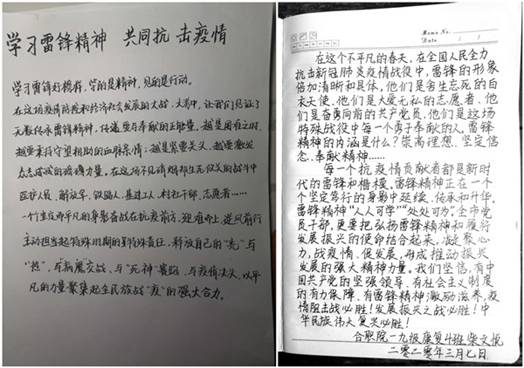 学习雷锋精神 共同抗击疫情
学习雷锋好榜样,学的是精神,见的是行动。
在这场疫情防控和经济社会发展的大战、大考中,让我们见证了
无数传承雷锋精神,传递坚与奉献的正能量。越是困难之时,
越要秉持守望相助的血脉亲情;越是紧要关头,越要激发
在这场不见硝烟却生死攸关的战斗中
医护人员、解放军、铁路人、基建工人、村社干部、志愿者……
一个个在平凡的身影奋战在抗疫前方,迎难而上、逆风前行
主动担当起特殊时期的特殊责任,释放自己的“光”与
“热”,与病魔交战、与“死神”赛跑、与疫情决战,以平
凡的力量聚集起全民族战“疫”的强大合力。
Memo No.
Date / /
在这个不平凡的春天,在全国人民全力
抗击新冠肺炎疫情战役中,雷锋的形象
倍加清晰和具体,他们是舍生忘死的白
衣天使,他们是大爱无私的志愿者,他
们是奋勇向前的共产党员,他们是这场
特殊战役中每一个勇于奉献的人,雷锋
精神的内涵是什么?崇高理想、坚定信
念、奉献精神……
每一个抗疫情贡献者都是新时
代的雷锋和楷模,雷锋精神正在一个
个坚定前行的身影中延续、传承和升华,
雷锋精神“人人可学”“处处可为”,全市党
员干部,更要把弘扬雷锋精神和履行
发展振兴的使命结合起来,凝聚心
力,战疫情、促发展,形成推动振兴
发展的强大精神力量。我们坚信,有中
国共产党的坚强领导,有社会主义制度
的有力保障,有雷锋精神激励滋养,疫
情阻击战必胜!发展振兴之战必胜!中
华民族伟大复兴必胜!
合职院一九级康复4班柴文悦
二零二零年三月七日